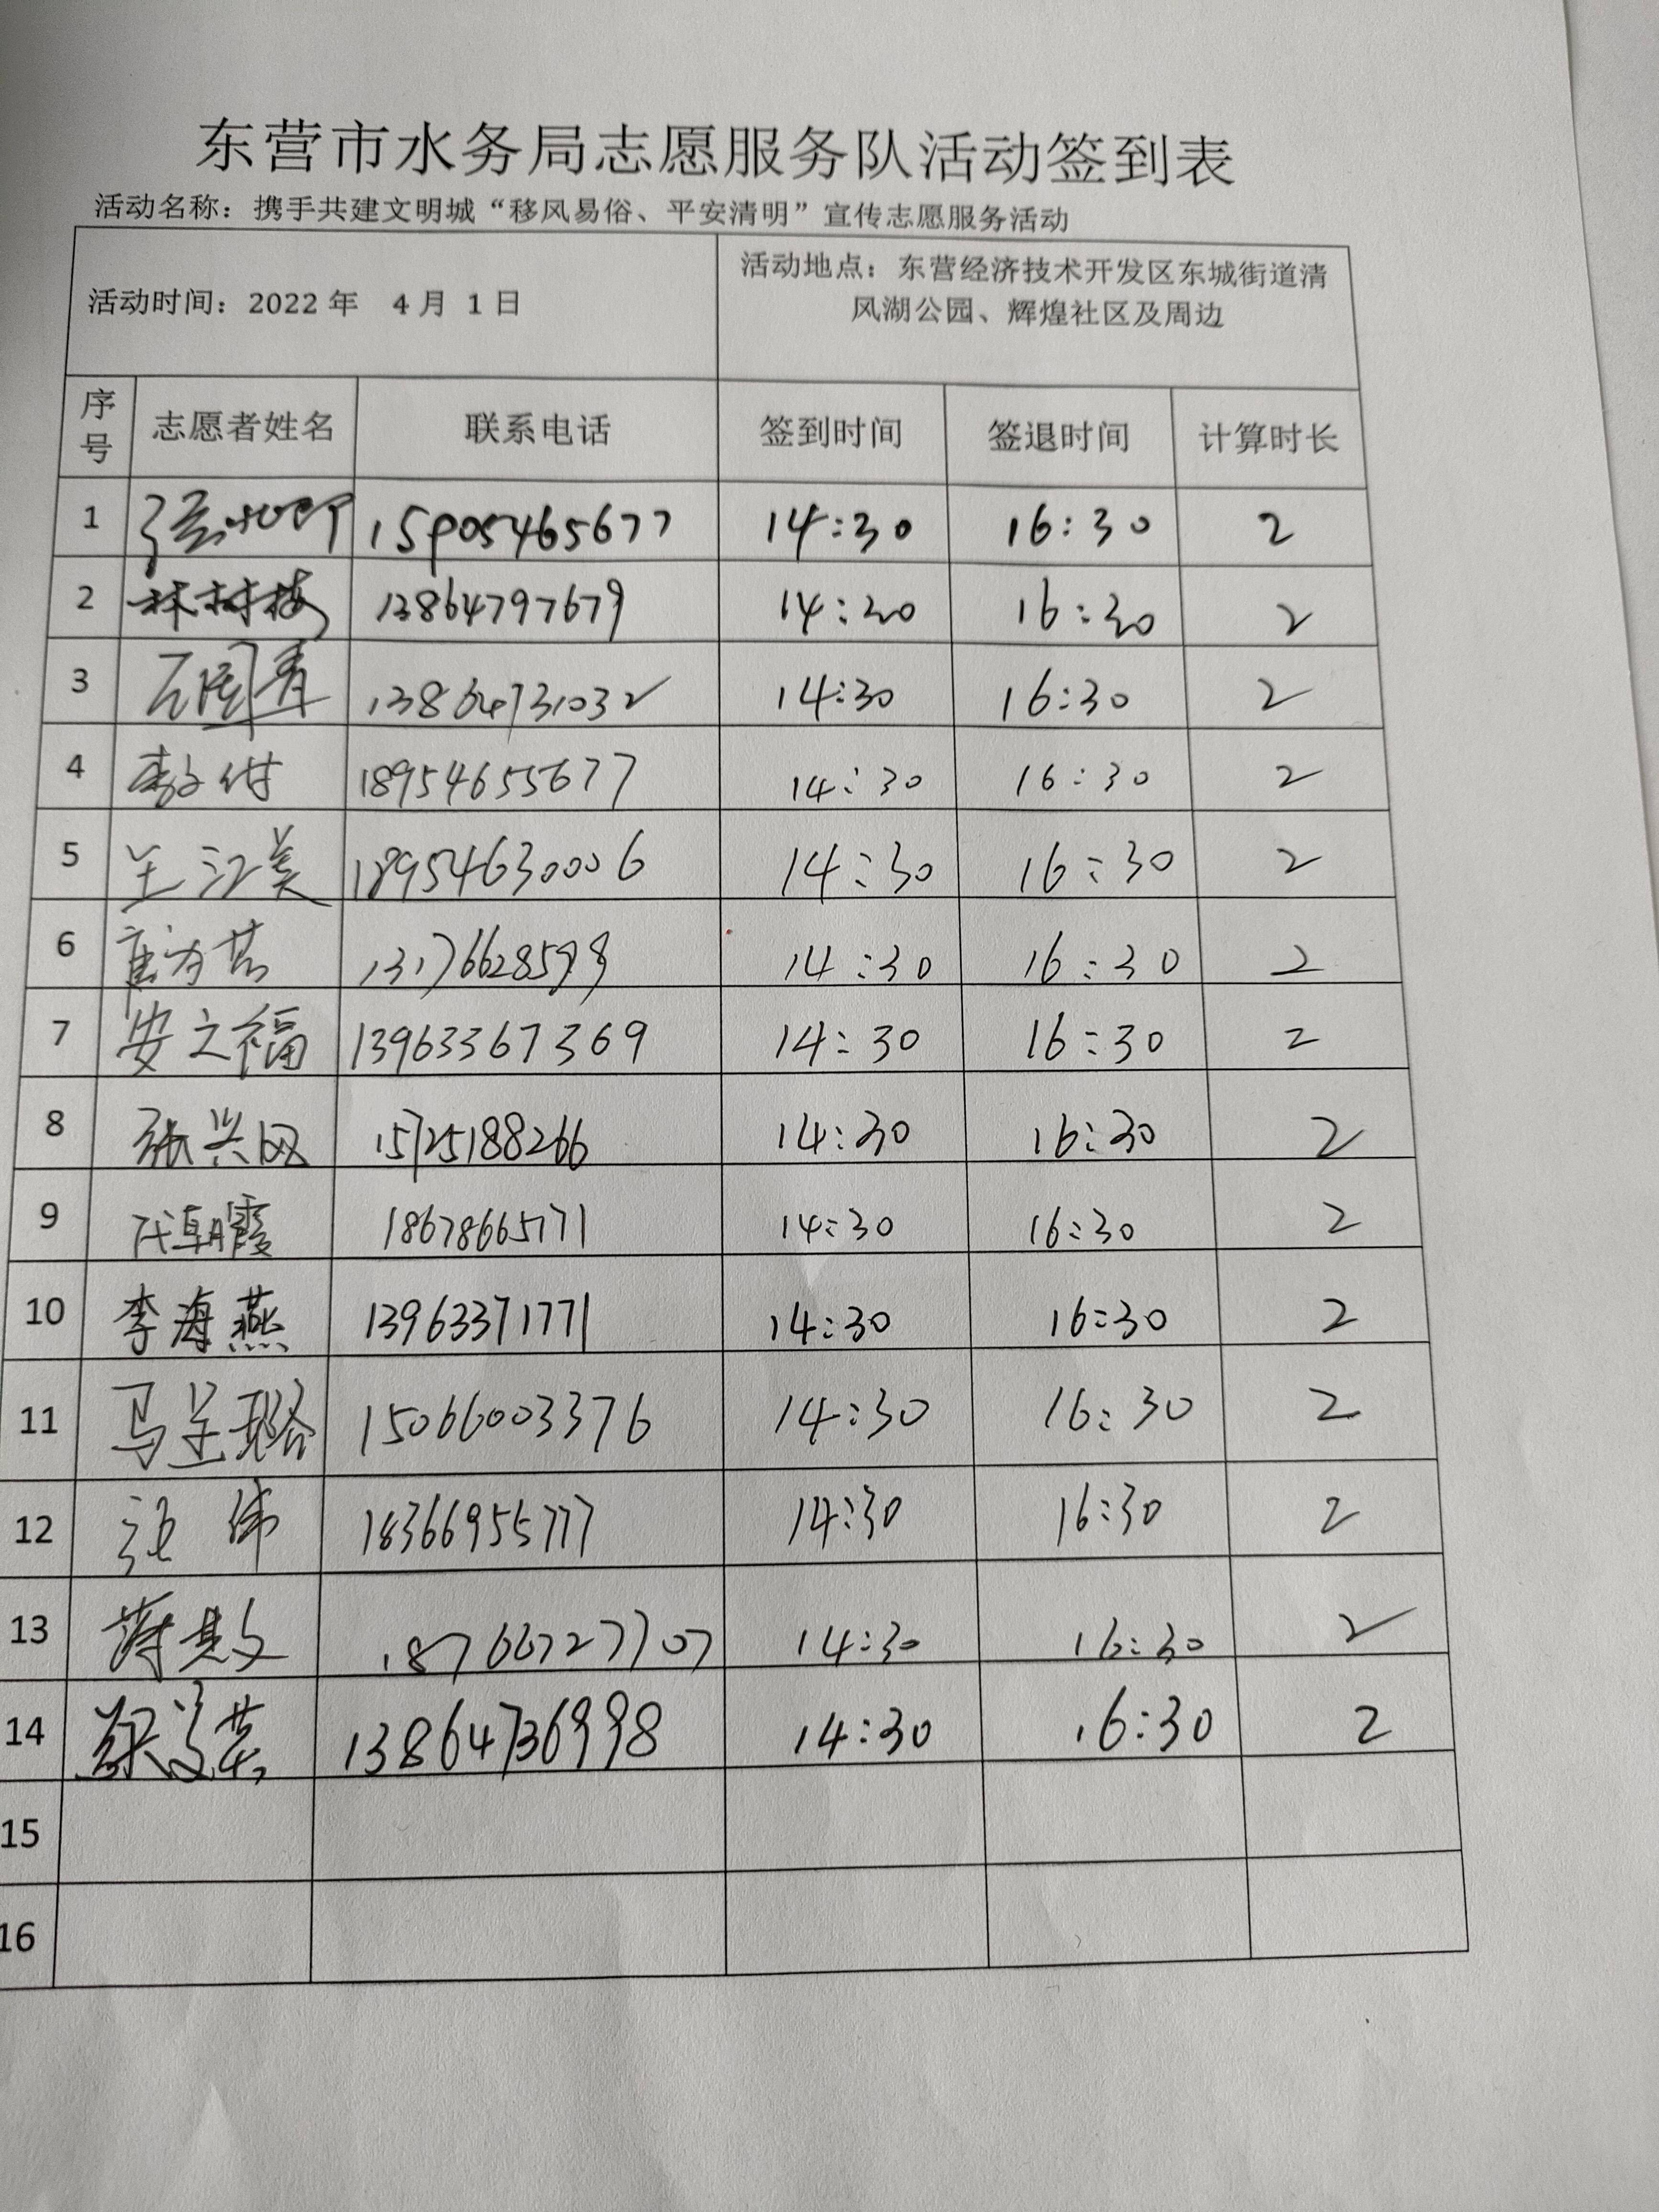 东营市水务局志愿服务队活动签到表
活动名称：携手共建文明城“移风易俗、平安清明”宣传志愿服务活动
活动时间：2022 年 4 月 1 日
活动地点：东营经济技术开发区东城街道清
风湖公园、辉煌社区及周边
序号 志愿者姓名 联系电话 签到时间 签退时间 计算时长
1 15905465677 14:30 16:30 2
2 林树梅 13864797679 14:30 16:30 2
3 石国青 13864731032 14:30 16:30 2
4 18954655677 14:30 16:30 2
5 王江美 18954630006 14:30 16:30 2
6 14:30 16:30 2
7 安之福 13963367369 14:30 16:30 2
8 张兴 15725188266 14:30 16:30 2
9 代朝霞 18678665771 14:30 16:30 2
10 李海燕 13963371771 14:30 16:30 2
11 马呈璐 15066003376 14:30 16:30 2
12 张伟 18366955777 14:30 16:30 2
13 18766727707 14:30 16:30 2
14 13864736998 14:30 16:30 2
15
16